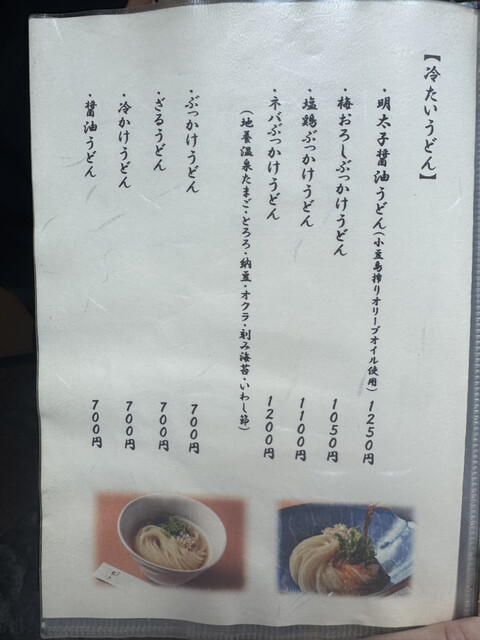 【冷たいうどん】
・明太子醤油うどん(小豆島搾りオリーブオイル使用) 1250円
・梅おろしぶっかけうどん 1050円
・塩鶏ぶっかけうどん 1100円
・ネバぶっかけうどん 1200円
(地養温泉たまご・とろろ・納豆・オクラ・刻み海苔・いわし節)
・ぶっかけうどん 700円
・ざるうどん 700円
・冷かけうどん 700円
・醤油うどん 700円